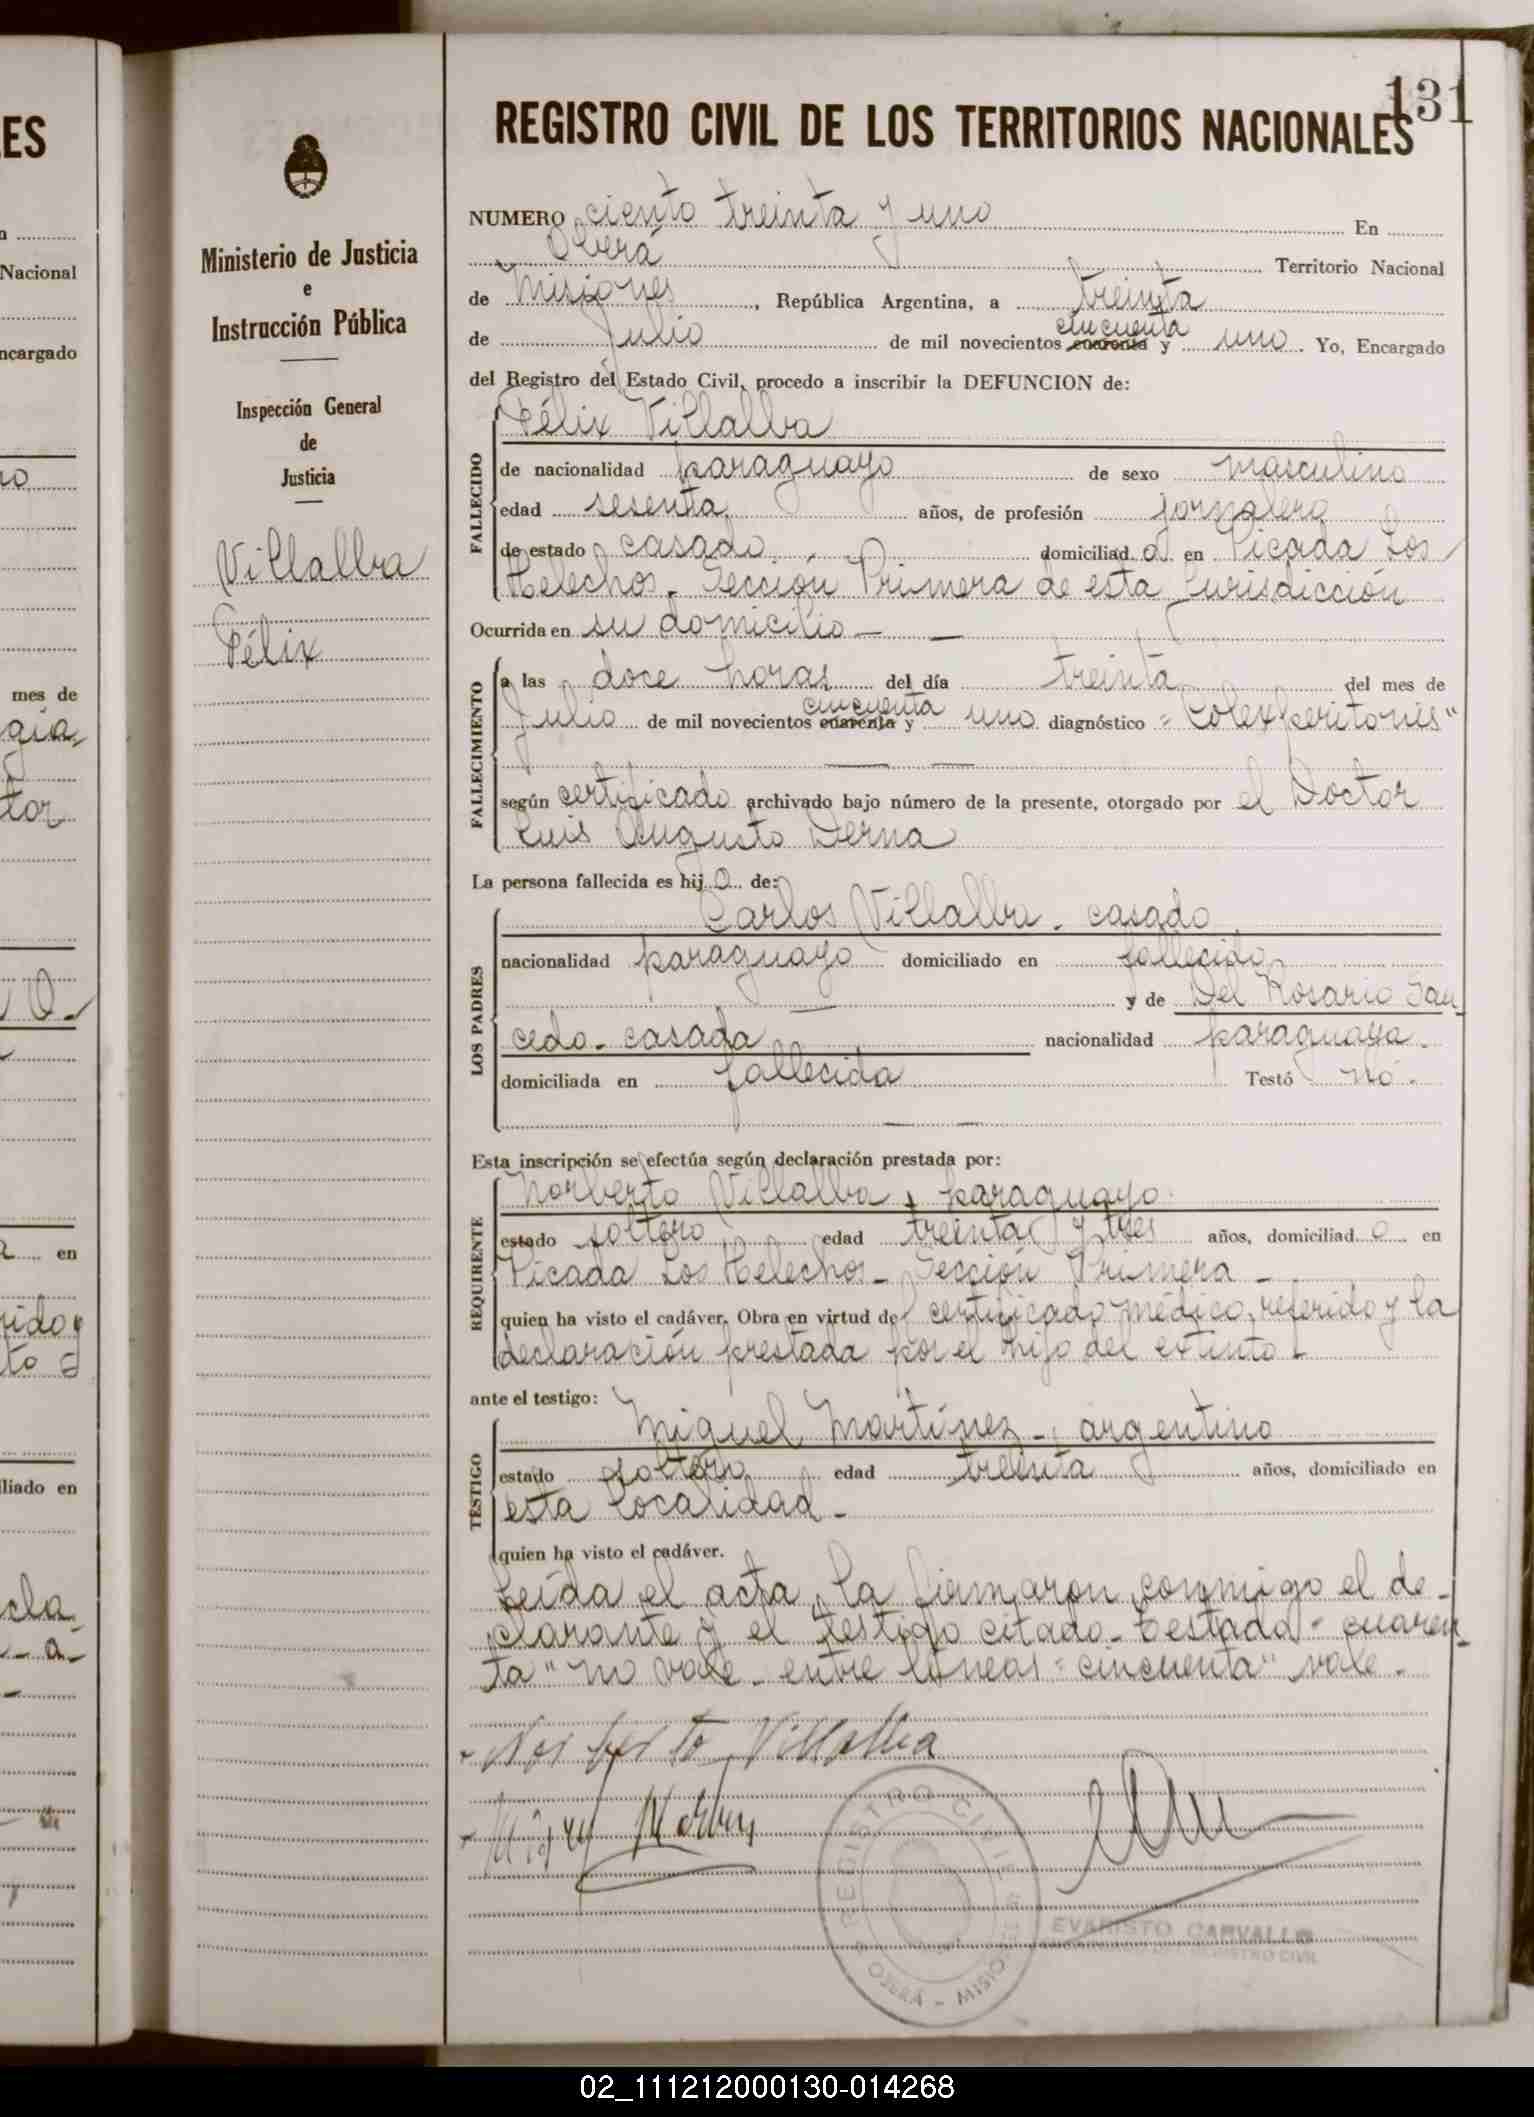 131
REGISTRO CIVIL DE LOS TERRITORIOS NACIONALES
Ministerio de Justicia
e
Instrucción Pública
Inspección General
de
Justicia
Villalba
Félix
NUMERO ciento treinta y uno En
Oberá Territorio Nacional
de Misiones, República Argentina, a treinta
de Julio de mil novecientos cuarenta cincuenta y uno. Yo, Encargado
del Registro del Estado Civil, procedo a inscribir la DEFUNCION de:
FALLECIDO
Félix Villalba
de nacionalidad paraguayo de sexo masculino
edad sesenta años, de profesión jornalero
de estado casado, domiciliado en Picada Los
Helechos. Sección Primera de esta Jurisdicción
Ocurrida en su domicilio —
FALLECIMIENTO
a las doce horas del día treinta del mes de
Julio de mil novecientos cuarenta cincuenta y uno diagnóstico "Colexperitonis"
según certificado archivado bajo número de la presente, otorgado por el Doctor
Luis Augusto Derna
La persona fallecida es hijo de:
LOS PADRES
Carlos Villalba. casado
nacionalidad paraguayo domiciliado en fallecido
y de Del Rosario Sau-
cedo. casada nacionalidad paraguaya.
domiciliada en fallecida Testó no.
Esta inscripción se efectúa según declaración prestada por:
REQUIRENTE
Norberto Villalba, paraguayo
estado soltero edad treinta y tres años, domiciliado en
Picada Los Helechos - Sección Primera -
quien ha visto el cadáver. Obra en virtud del certificado médico referido y la
declaración prestada por el hijo del extinto.
ante el testigo:
TESTIGO
Miguel Martínez -, argentino
estado soltero edad treinta años, domiciliado en
esta localidad -
quien ha visto el cadáver.
Leída el acta, la firmaron conmigo el de-
clarante y el testigo citado. Testado = cuaren-
ta" no vale - entre líneas = cincuenta" vale.
Norberto Villalba
REGISTRO CIVIL
OBERÁ - MISIONES
EVARISTO CARVALLO
REGISTRO CIVIL
02_111212000130-014268